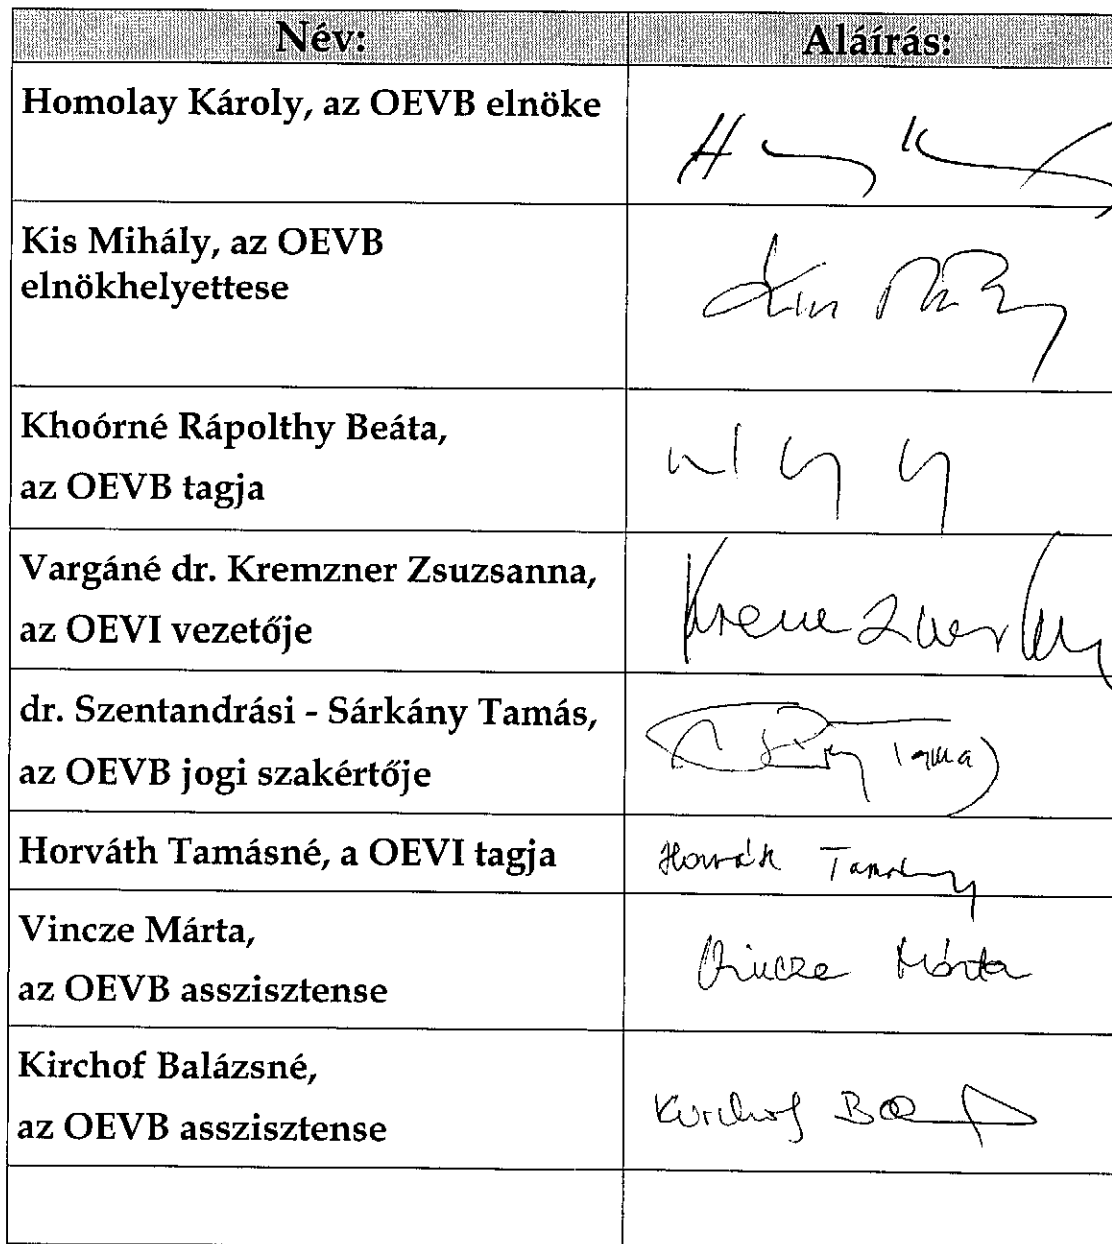 Név: Aláírás:
Homolay Károly, az OEVB elnöke
Kis Mihály, az OEVB
elnökhelyettese
Khoórné Rápolthy Beáta,
az OEVB tagja
Vargáné dr. Kremzner Zsuzsanna,
az OEVI vezetője
dr. Szentandrási - Sárkány Tamás,
az OEVB jogi szakértője
Horváth Tamásné, a OEVI tagja
Horváth
Vincze Márta,
az OEVB asszisztense
Vincze Márta
Kirchof Balázsné,
az OEVB asszisztense
Kirchof